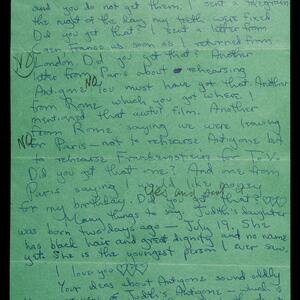 and you do not get them. I sent a telegram
the night of the day my teeth were fixed
Did you get that? I sent a letter from
Caen France as soon as I returned from
NO London. Did you get that? Another
letter from Paris about rehearsing
Antigone NO You must have got that. Another
from Rome which you got where I
mentioned that movie film. Another
from Rome saying we were leaving
NO for Paris—not to rehearse Antigone but
to rehearse Frankenstein for T.V.
Did you get that one? And one from
Paris saying I Yes and the poesy
for my birthday. Did you get that? ♡♡
Many things to say. Judith's daughter
was born two days ago — July 19. She
has black hair and great dignity and no name
yet. She is the youngest person I ever saw.
I love you ♡♡♡
Your ideas about Antigone sound oddly
Judith's Antigone — which